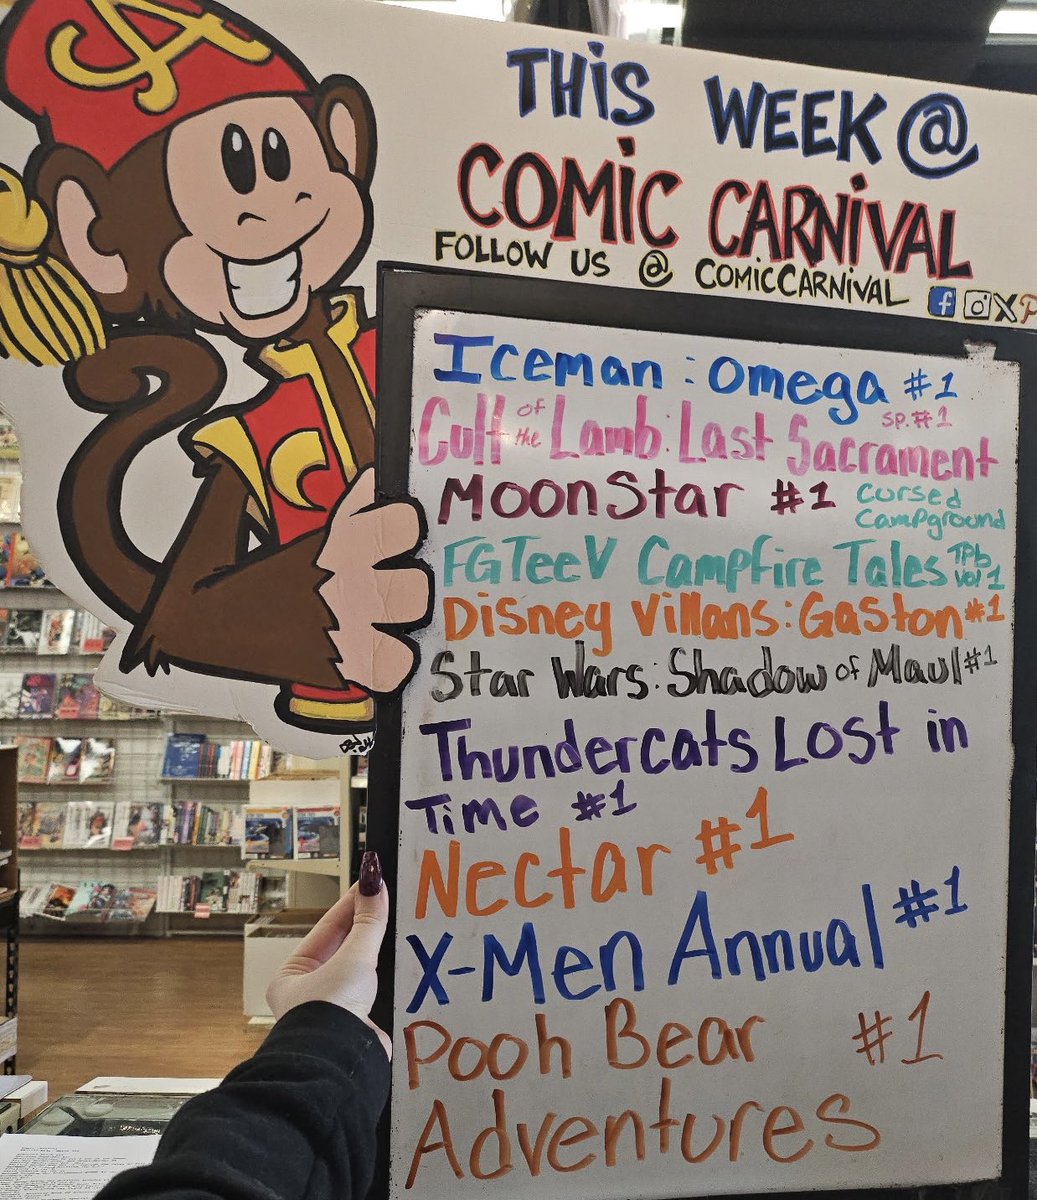 THiS WEEK @
COMiC CARNiVAL
FOLLOW US @ COMiCCARNiVAL
Iceman : Omega #1
Cult of the Lamb: Last Sacrament sp. #1
MoonStar #1
Cursed Campground
FGTeeV Campfire Tales TPb Vol 1
Disney Villans: Gaston #1
Star Wars: Shadow of Maul #1
Thundercats Lost in
Time #1
Nectar #1
X-Men Annual #1
Pooh Bear #1
Adventures